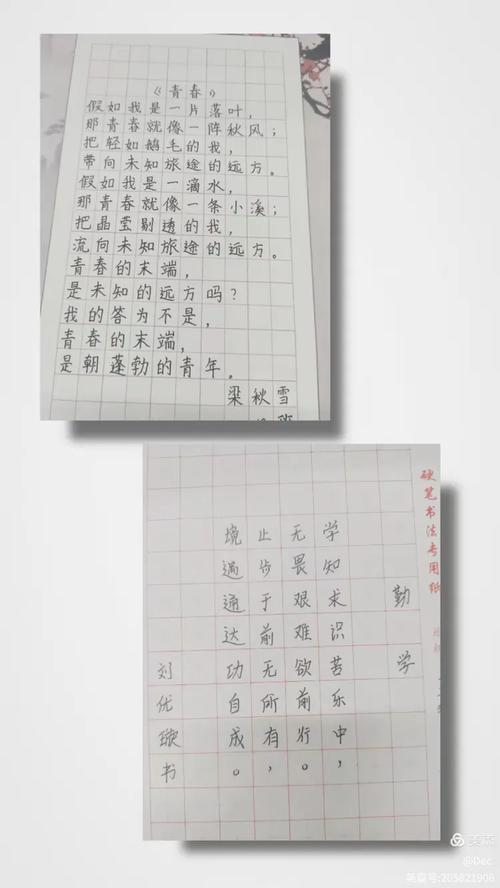 《青春》
假如我是一片落叶，
那青春就像一阵秋风；
把轻如鹅毛的我，
带向未知旅途的远方。
假如我是一滴水，
那青春就像一条小溪；
把晶莹剔透的我，
流向未知旅途的远方。
青春的末端，
是未知的远方吗？
我的答为不是，
青春的末端，
是朝蓬勃的青年。
梁秋雪
硬笔书法专用纸
勤学
学知求识苦乐中，
无畏艰难欲前行。
止步于前无所有，
境遇通达功自成。
刘优璇书
美篇
@Dec.
美篇号:205821908